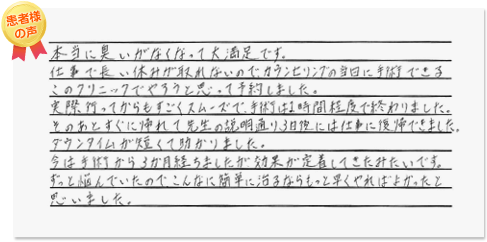 患者様
の声
本当に臭いがなくなって大満足です。
仕事で長い休みが取れないのでカウンセリングの当日に手術できる
このクリニックでやろうと思って予約しました。
実際行ってからもすごくスムーズで、手術は1時間程度で終わりました。
そのあとすぐに帰れて先生の説明通り3日後には仕事に復帰できました。
ダウンタイムが短くて助かりました。
今は手術から3か月経ちましたが効果が定着してきたみたいです。
ずっと悩んでいたのでこんなに簡単に治るならもっと早くやればよかったと
思いました。